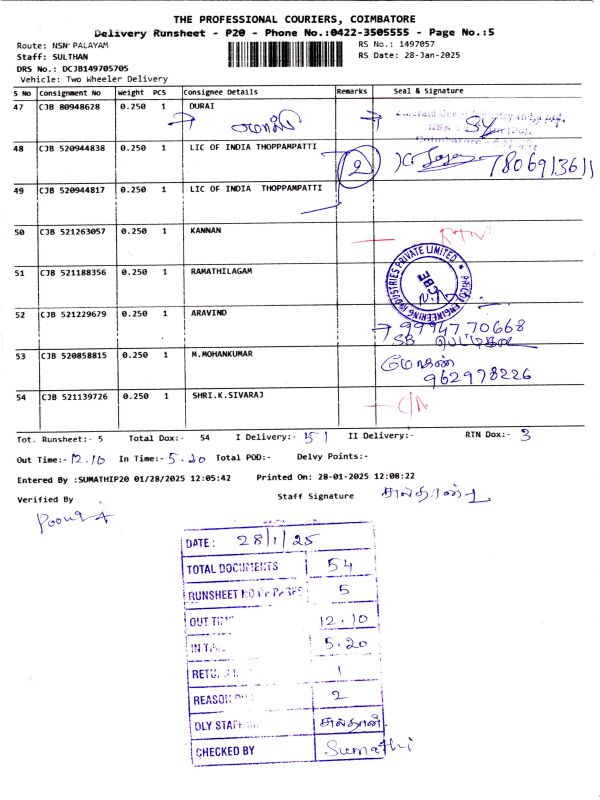 THE PROFESSIONAL COURIERS, COIMBATORE
Delivery Runsheet - P20 - Phone No.:0422-3505555 - Page No.:5
Route: NSN PALAYAM
RS No.: 1497057
Staff: SULTHAN
RS Date: 28-Jan-2025
DRS No.: DCJB149705705
Vehicle: Two Wheeler Delivery
S No Consignment No Weight PCS Consignee Details Remarks Seal & Signature
47 CJB 80948628 0.250 1 DURAI
48 CJB 520944838 0.250 1 LIC OF INDIA THOPPAMPATTI 2 7806913611
49 CJB 520944817 0.250 1 LIC OF INDIA THOPPAMPATTI
50 CJB 521263057 0.250 1 KANNAN RTN
51 CJB 521188356 0.250 1 RAMATHILAGAM
ENGINEERING INDUSTRIES PRIVATE LIMITED
52 CJB 521229679 0.250 1 ARAVIND 9994770668
53 CJB 520858815 0.250 1 M.MOHANKUMAR
962978226
54 CJB 521139726 0.250 1 SHRI.K.SIVARAJ
Tot. Runsheet:- 5 Total Dox:- 54 I Delivery:- 51 II Delivery:- RTN Dox:- 3
Out Time:- 12.10 In Time:- 5.20 Total POD:- Delvy Points:-
Entered By :SUMATHIP20 01/28/2025 12:05:42 Printed On: 28-01-2025 12:08:22
Verified By
Staff Signature சுல்தான்
DATE: 28/1/25
TOTAL DOCUMENTS 54
RUNSHEET 5
OUT TIME 12.10
IN TIME 5.20
1
REASON 2
DLY STAFF சுல்தான்
CHECKED BY Sumathi